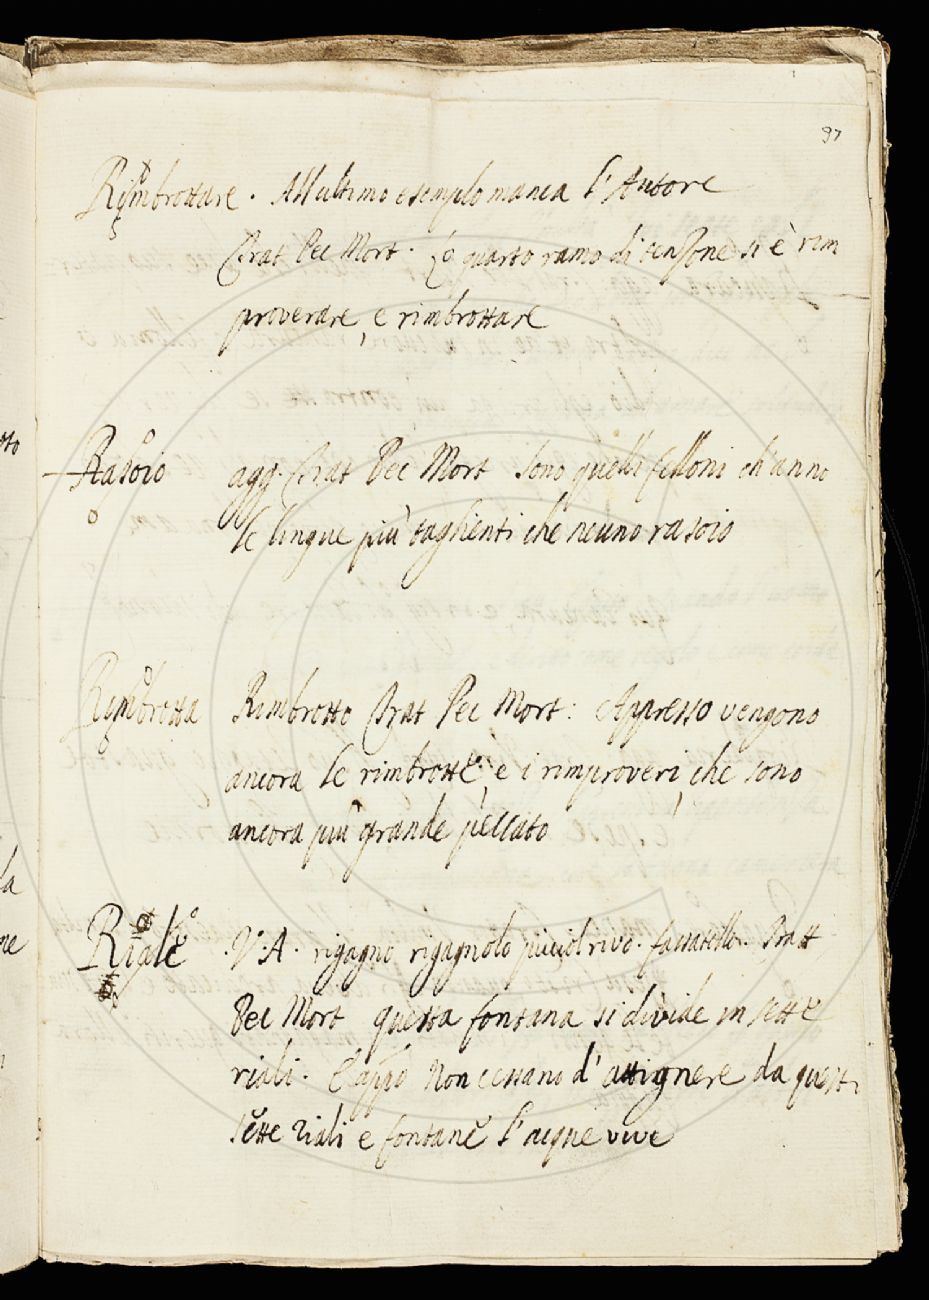 97
Rimbrottare. All'ultimo esemplo manca l'Autore
Trat Pec Mort. Lo quarto ramo di tenzone si è rim
proverare, e rimbrottare
Rasoio agg. Trat Pec Mort Sono quelli felloni ch'anno
le lingue più taglienti che neuno rasoio
Rimbrotta Rimbrotto Trat Pec Mort: Appresso vengono
ancora le rimbrotte, e i rimproveri, che sono
ancora più grande peccato
Riale V. A. rigagno rigagnolo picciol rivo. fossatello. Tratt
Pec Mort questa fontana si divide in sette
riali. E appo Non cessano d'attignere da questi
sette riali e fontane l'acque vive